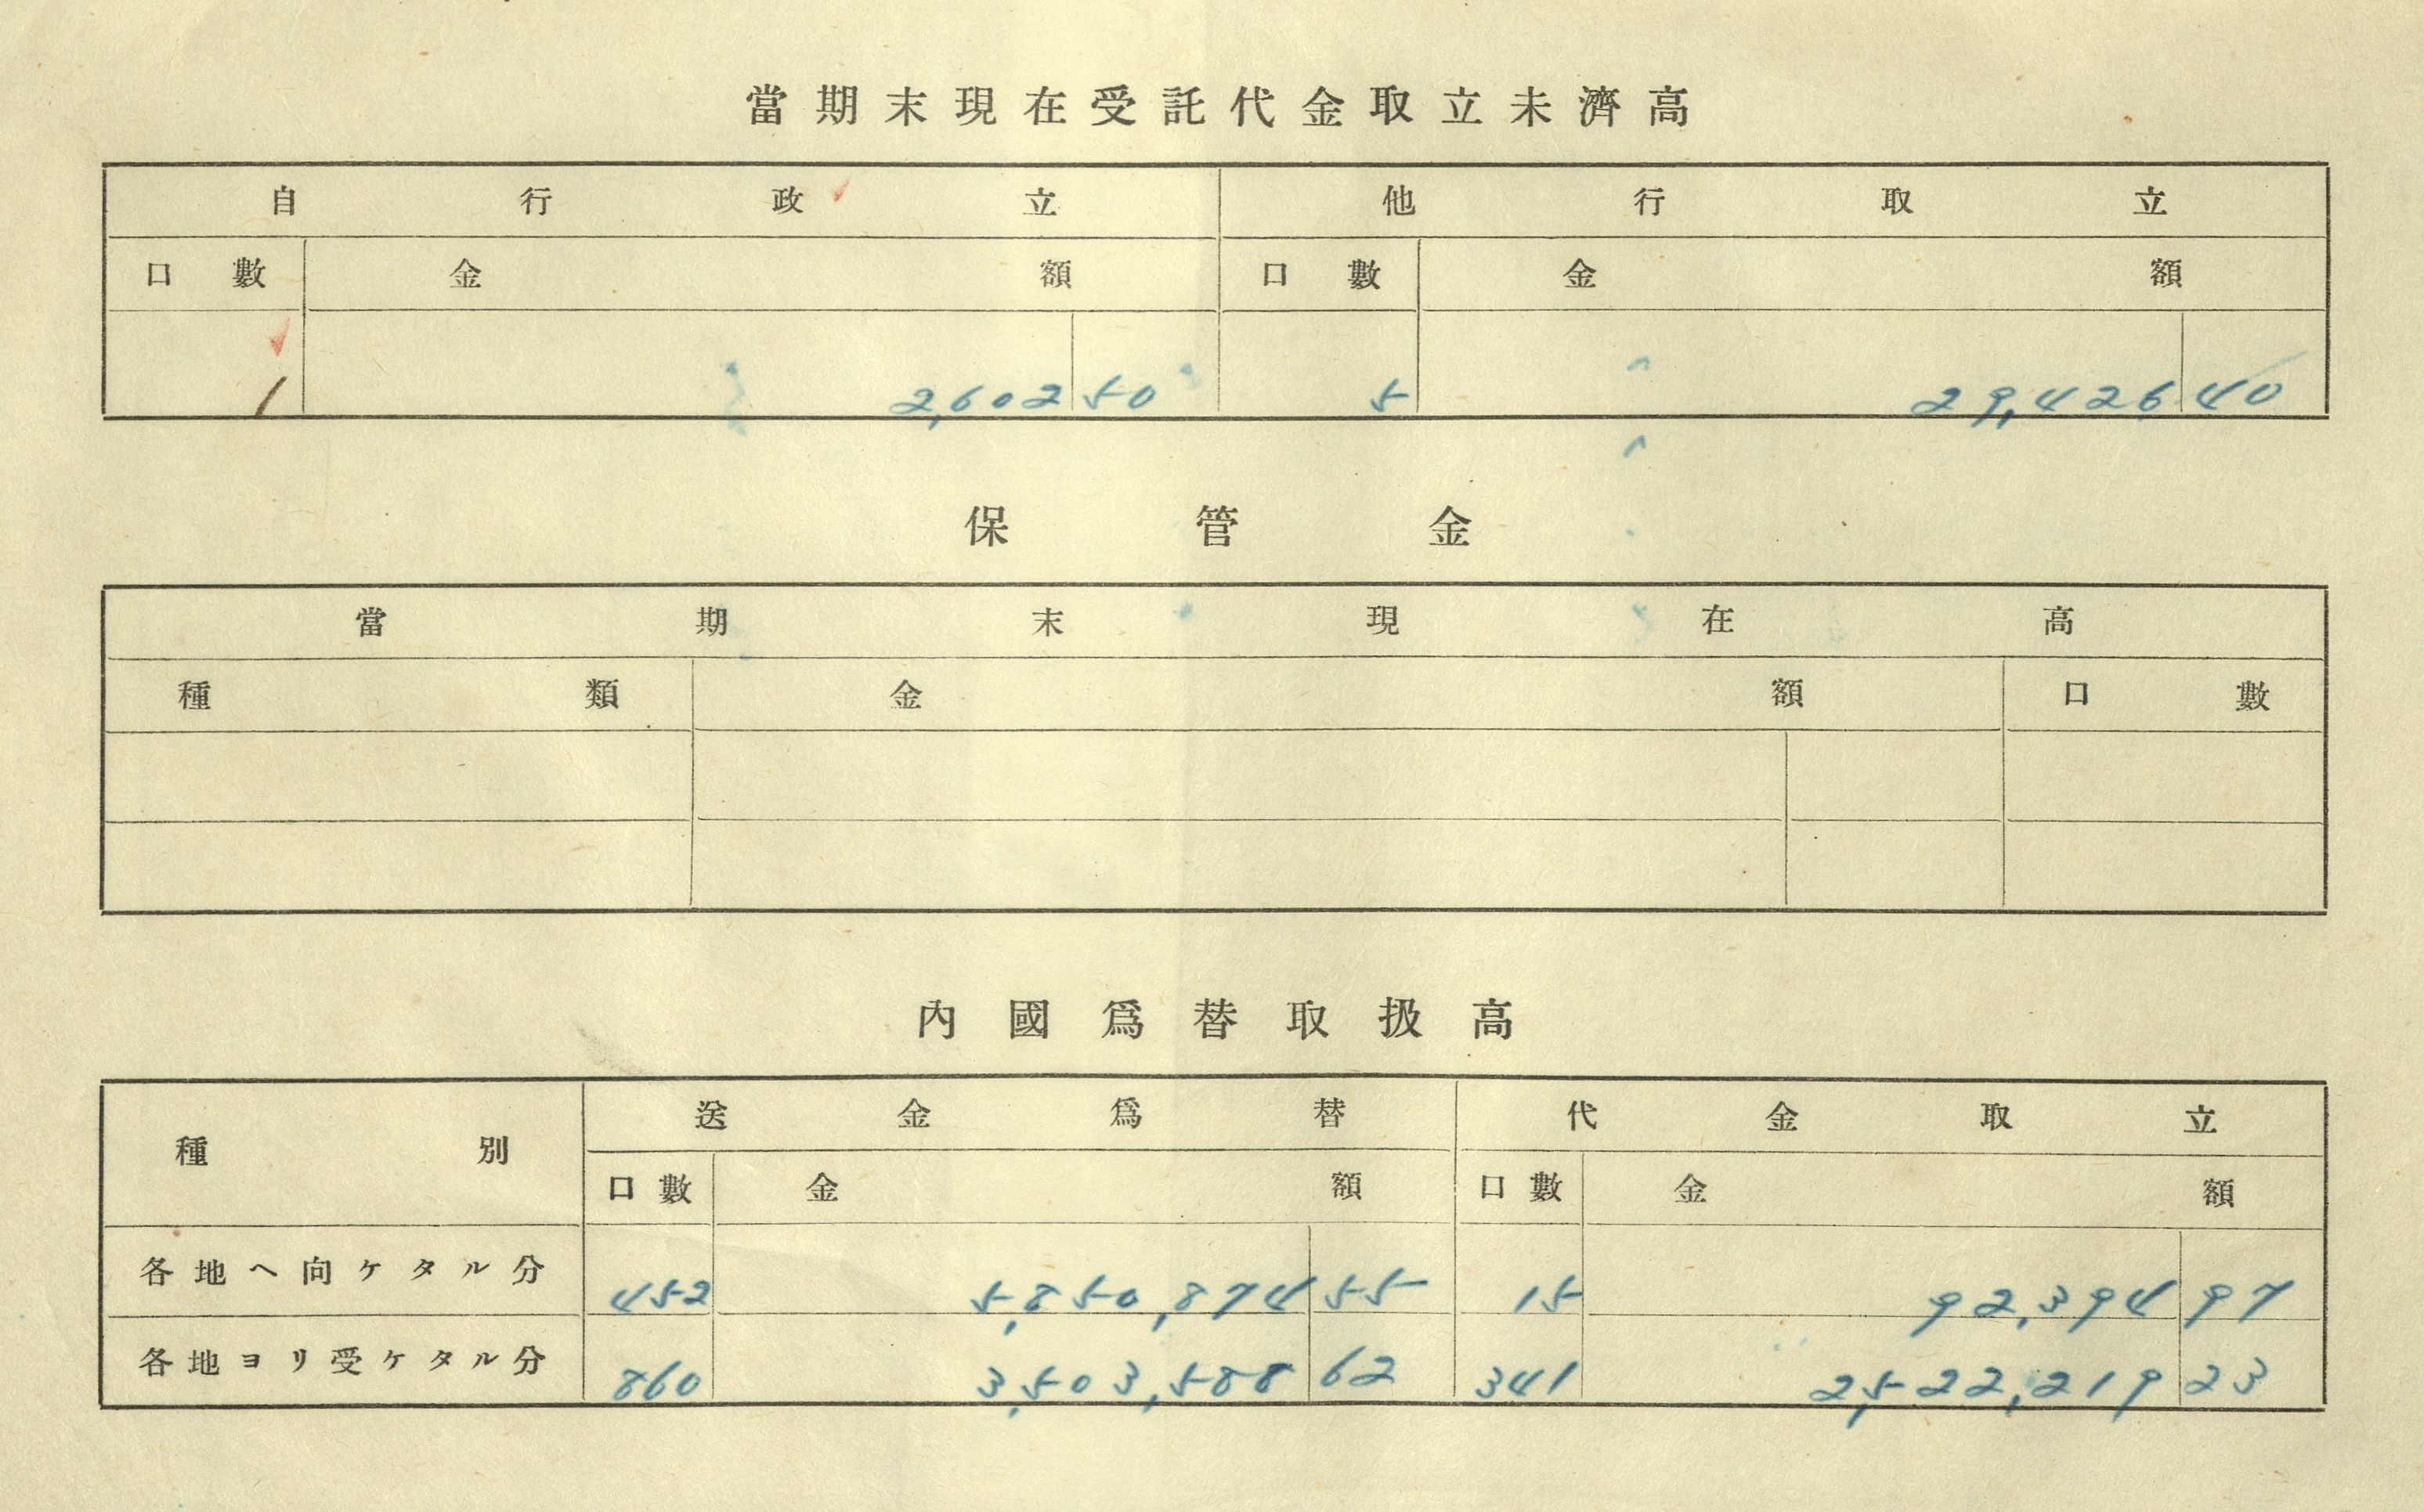 當期末現在受託代金取立未濟高
自行政立 他行取立
口數 金額 口數 金額
1 2,602 50 5 29,426 40
保管金
當期末現在高
種類 金額 口數
內國爲替取扱高
種別 送金爲替 代金取立
口數 金額 口數 金額
各地ヘ向ケタル分 452 5,850,874 55 15 92,394 97
各地ヨリ受ケタル分 860 3,503,588 62 341 2,522,219 23